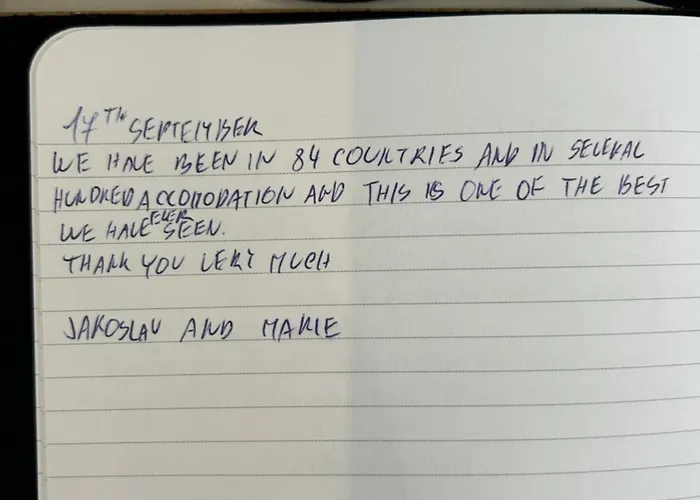 17TH SEPTEMBER
WE HAVE BEEN IN 84 COUNTRIES AND IN SEVERAL
HUNDRED ACCOMODATION AND THIS IS ONE OF THE BEST
WE HAVE EVER SEEN.
THANK YOU VERY MUCH
JAROSLAV AND MARIE